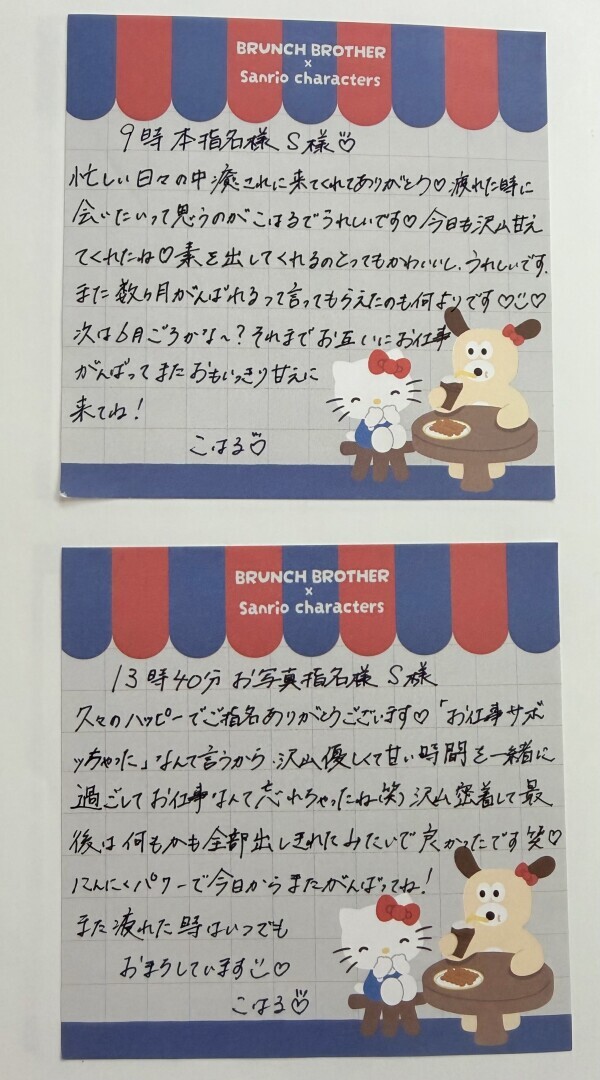 BRUNCH BROTHER
×
Sanrio characters
9時 本指名様 S様♡
忙しい日々の中癒されに来てくれてありがとう♡疲れた時に
会いたいって思うのがこはるでうれしいです♡今日も沢山甘え
てくれたね♡素を出してくれるのとってもかわいいし、うれしいです、
また数ヶ月がんばれるって言ってもらえたのも何よりです♡☺♡
次は6月ごろかな〜?それまでお互いにお仕事
がんばってまたおもいっきり甘えに
来てね!
こはる♡
BRUNCH BROTHER
×
Sanrio characters
13時40分 お写真指名様 S様
久々のハッピーでご指名ありがとうございます♡「お仕事サボ
ッちゃった」なんて言うから、沢山優しくて甘い時間を一緒に
過ごしてお仕事なんて忘れちゃったね(笑)沢山密着して最
後は何もかも全部出しきれたみたいで良かったです笑♡
にんにくパワーで今日からまたがんばってね!
また疲れた時はいつでも
おまちしています☺♡
こはる♡